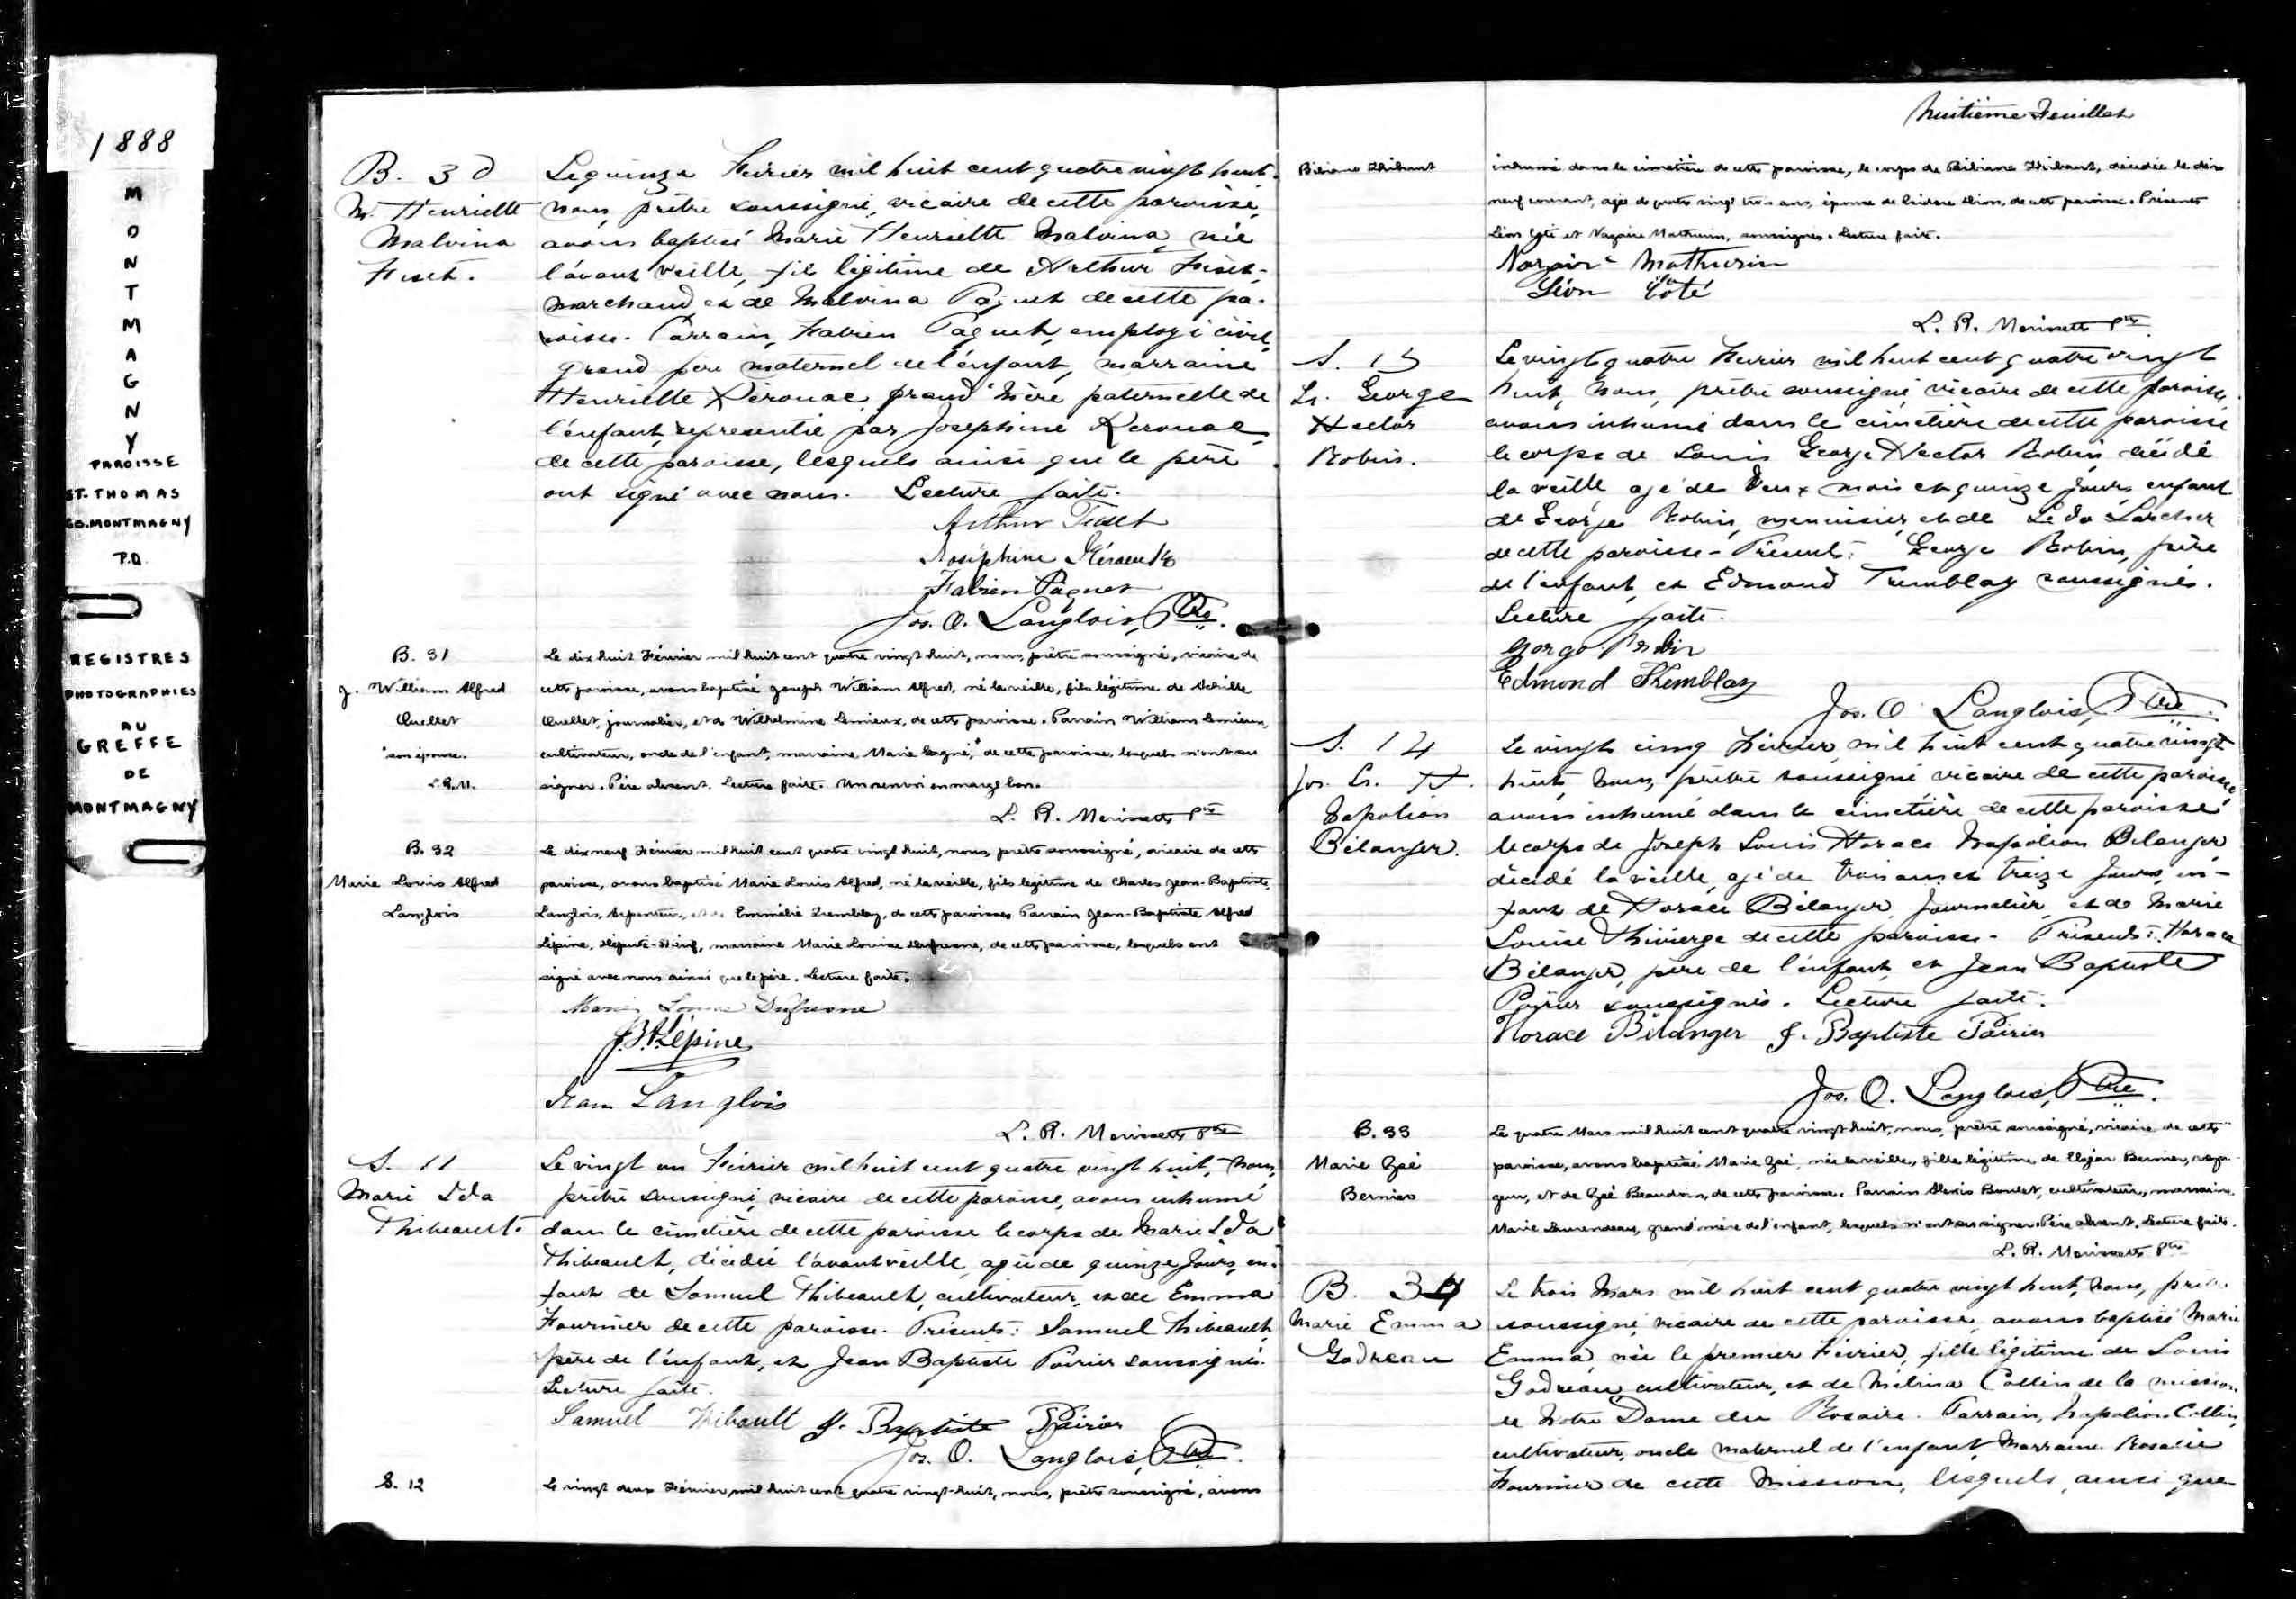 1888
MONTMAGNY
PAROISSE
ST. THOMAS
CO. MONTMAGNY
P.Q.
REGISTRES
PHOTOGRAPHIES
AU
GREFFE
DE
MONTMAGNY
B. 30
M. Henriette
Malvina
Fiset.
Le quinze Février mil huit cent quatre vingt huit,
nous, prêtre soussigné, vicaire de cette paroisse,
avons baptisé Marie Henriette Malvina, née
l'avant veille, fille légitime de Arthur Fiset,
marchand et de Malvina Paquet de cette pa-
roisse. Parrain, Fabien Paquet, employé civil,
grand père maternel de l'enfant, marraine
Henriette Kérouac, grand'mère paternelle de
l'enfant, représentée par Joséphine Kerouac,
de cette paroisse, lesquels ainsi que le père
ont signé avec nous. Lecture faite.
Arthur Fiset
Joséphine
Fabien Paquet
Jos. O. Langlois, Ptre.
B. 31
J. William Alfred
Ouellet
son épouse.
L.R.M.
Le dix huit Février mil huit cent quatre vingt huit, nous, prêtre soussigné, vicaire de
cette paroisse, avons baptisé Joseph William Alfred, né la veille, fils légitime de Achille
Ouellet, journalier, et de Wilhelmine Lemieux, de cette paroisse. Parrain William Lemieux,
cultivateur, oncle de l'enfant, marraine, Marie, de cette paroisse, lesquels n'ont su
signer. Père absent. Lecture faite. Un renvoi en marge bon.
L. R. Morissette Ptre
B. 32
Marie Louis Alfred
Langlois
Le dix neuf Février mil huit cent quatre vingt huit, nous, prêtre soussigné, vicaire de cette
paroisse, avons baptisé Marie Louis Alfred, né la veille, fils légitime de Charles Jean-Baptiste
Langlois, Arpenteur, et de Emmélie Tremblay, de cette paroisse. Parrain Jean-Baptiste Alfred
Lépine, Député-Shérif, marraine Marie Louise Dufresne, de cette paroisse, lesquels ont
signé avec nous ainsi que le père. Lecture faite.
Marie Louise Dufresne
J.B.A. Lépine
Jean Langlois
L. R. Morissette Ptre
S. 11
Marie Lda
Thibeault.
Le vingt un Février mil huit cent quatre vingt huit, nous,
prêtre soussigné, vicaire de cette paroisse, avons inhumé
dans le cimetière de cette paroisse le corps de Marie Lda
Thibeault, décédée l'avant veille, agée de quinze jours, en-
fant de Samuel Thibeault, cultivateur, et de Emma
Fournier de cette paroisse. Présents: Samuel Thibeault,
père de l'enfant, et Jean Baptiste Poirier soussignés.
Lecture faite.
Samuel Thibault J. Baptiste Poirier
Jos. O. Langlois, Ptre.
S. 12
Le vingt deux Février mil huit cent quatre vingt-huit, nous, prêtre soussigné, avons
huitième Feuillet
Bibiane Thibaut
inhumé dans le cimetière de cette paroisse, le corps de Bibiane Thibaut, décédée le dix
neuf courant, agée de quatre vingt trois ans, épouse de Isidore Dion, de cette paroisse. Présents
Léon Côté et Nazaire Mathurin, soussignés. Lecture faite.
Nazaire Mathurin
Léon Côté
L. R. Morissette Ptre
S. 13
Ls. George
Hector
Robin.
Le vingt quatre Février mil huit cent quatre vingt
huit, nous, prêtre soussigné, vicaire de cette paroisse,
avons inhumé dans le cimetière de cette paroisse
le corps de Louis George Hector Robin, décédé
la veille agé de deux mois et quinze jours, enfant
de George Robin, menuisier, et de Léda Larcher
de cette paroisse. Présents: George Robin, père
de l'enfant, et Edmond Tremblay soussignés.
Lecture faite.
Gorge Robin
Edmond Tremblay
Jos. O. Langlois, Ptre.
S. 14
Jos. Ls. H.
Napoléon
Bélanger.
Le vingt cinq Février, mil huit cent quatre vingt
huit, nous, prêtre soussigné, vicaire de cette paroisse,
avons inhumé dans le cimetière de cette paroisse
le corps de Joseph Louis Horace Napoléon Bélanger,
décédé la veille, agé de trois ans et treize jours, en-
fant de Horace Bélanger, journalier, et de Marie
Louise Thivierge de cette paroisse. Présents: Horace
Bélanger, père de l'enfant, et Jean Baptiste
Poirier soussignés. Lecture faite.
Horace Bélanger J. Baptiste Poirier
Jos. O. Langlois, Ptre.
B. 33
Marie Zoé
Bernier
Le quatre Mars mil huit cent quatre vingt huit, nous, prêtre soussigné, vicaire de cette
paroisse, avons baptisé Marie Zoé, née la veille, fille légitime de Elzéar Bernier, voya-
geur, et de Zoé Beaudoin, de cette paroisse. Parrain Alexis Boulet, cultivateur, marraine,
Marie Laurendeau, grand'mère de l'enfant, lesquels n'ont su signer. Père absent. Lecture faite.
L. R. Morissette Ptre
B. 34
Marie Emma
Godreau
Le trois Mars mil huit cent quatre vingt huit, nous, prêtre
soussigné, vicaire de cette paroisse, avons baptisé Marie
Emma, née le premier Février, fille légitime de Louis
Godreau, cultivateur, et de Mélina Collin de la mission
de Notre Dame du Rosaire. Parrain, Napoléon Collin,
cultivateur, oncle maternel de l'enfant, Marraine Rosalie
Fournier de cette Mission, lesquels, ainsi que